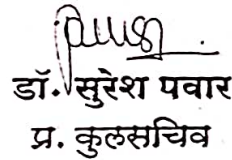 डॉ. सुरेश पवार
प्र. कुलसचिव